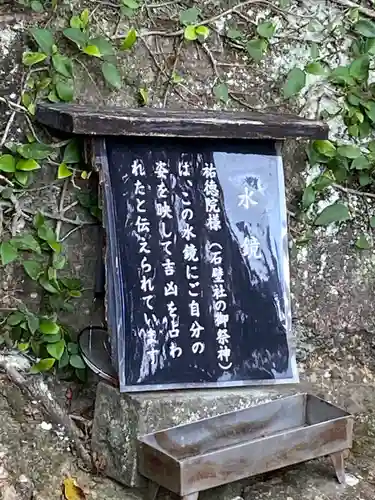 水鏡
祐徳院様(石壁社の御祭神)
は、この水鏡にご自分の
姿を映して吉凶を占わ
れたと伝えられています